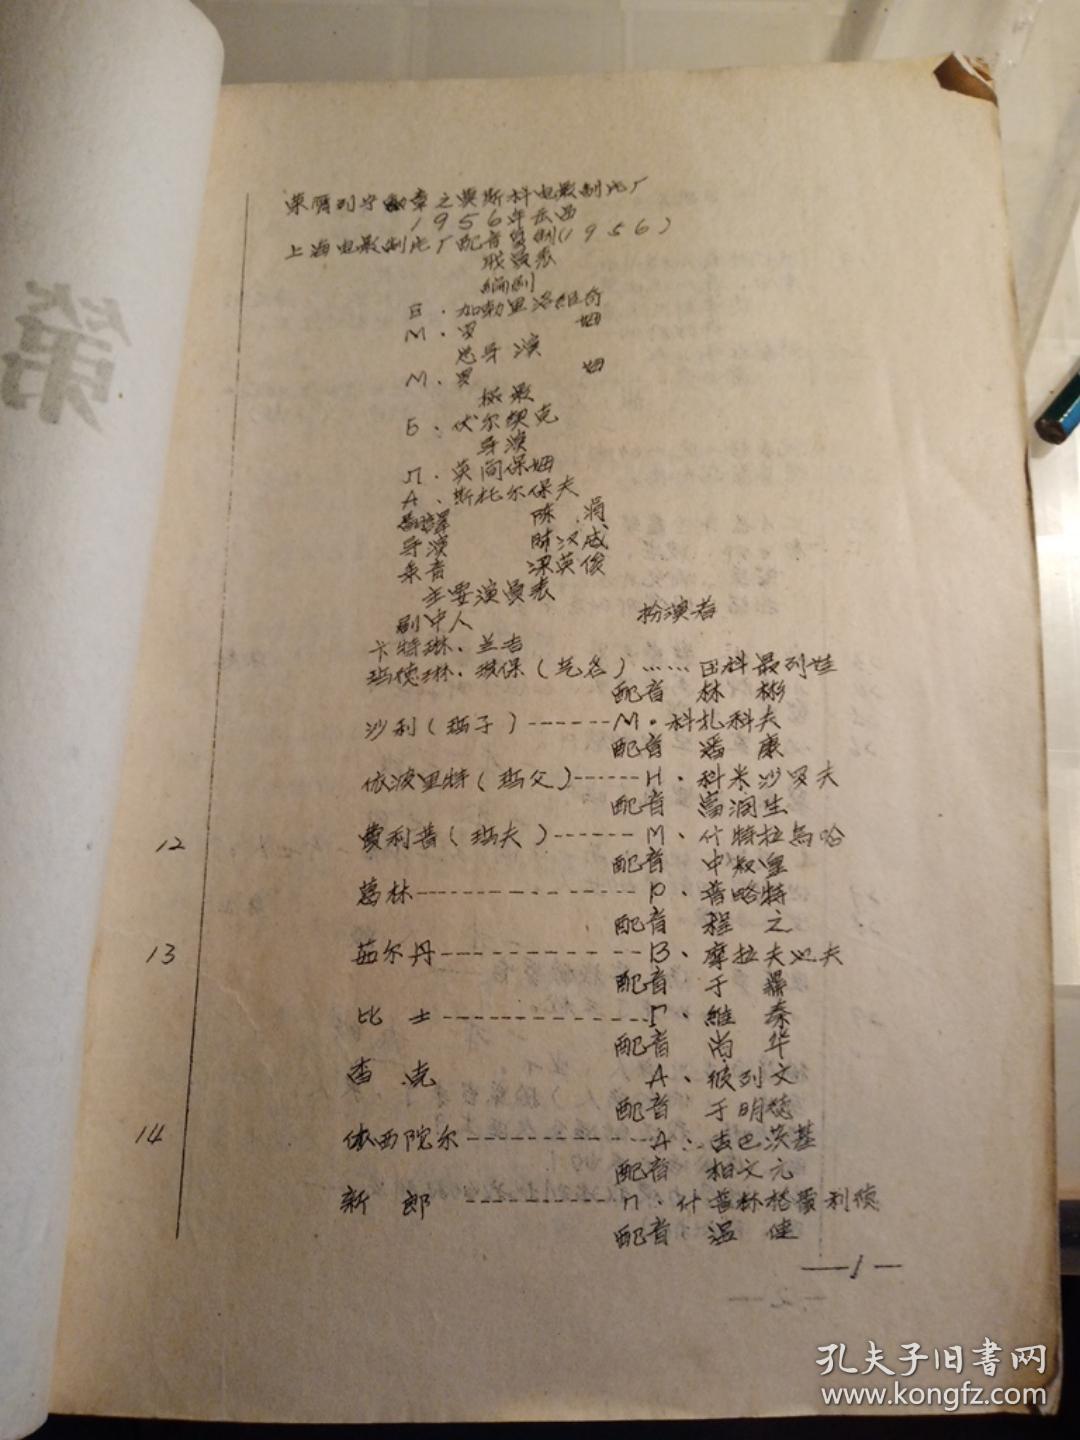 第
荣膺列宁勋章之莫斯科电影制片厂
1956年出品
上海电影制片厂配音复制(1956)
职员表
编剧
E·加勃里洛维奇
M·罗 姆
总导演
M·罗 姆
摄影
Б·伏尔契克
导演
Л·英间保姆
A·斯托尔保夫
翻译 陈 涓
导演 时汉威
录音 梁英俊
主要演员表
剧中人 扮演者
卡特琳·兰吉
玛德琳·玻保(艺名)……田科最列娃
配音 林 彬
沙利(玛子)------M·科扎科夫
配音 潘 康
依波里特(玛父)------H·科米沙罗夫
配音 富润生
12 费利普(玛夫)------M·什特拉乌哈
配音 中叔皇
葛林--------------P·普略特
配音 程 之
13 茹尔丹-------------B·摩拉夫也夫
配音 于 鼎
比 士-------------Г·维 秦
配音 尚 华
查 克 A·彼列文
配音 于明德
14 依西陀尔------------A·吉巴茨基
配音 柏文元
新 郎-----------П·什普林格费利德
配音 温 健
—1—
—2—
孔夫子旧書网
www.kongfz.com